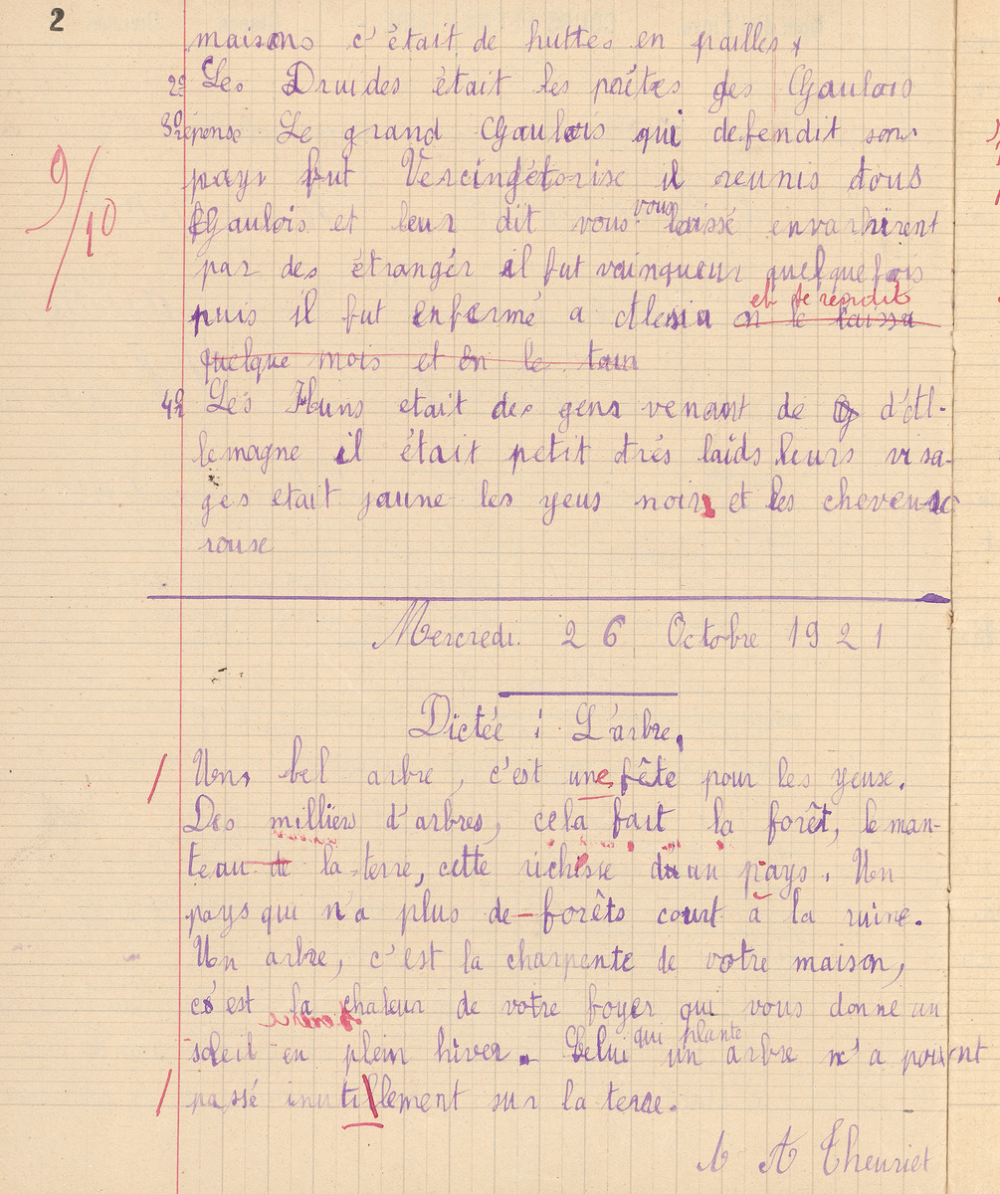 2
maisons c'était de huttes en pailles
2º Les Druides était les poétes des Gaulois
3º réponse Le grand Gaulois qui defendit sons
pays fut Vercingétorixe il reunis tous
Gaulois et leur dit vous vous laissé envarhirent
9/10
par des étrangér il fut vainqueur quelque fois
puis il fut enfermé a Alesia et se rendit on le laissa
quelque mois et on le tua
4º Les Huns etait des gens venant de d'Al-
lemagne il était petit trés laids leurs visa-
ges etait jaune les yeus noirs et les cheveux
rouse
Mercredi 26 Octobre 1921
Dictée : L'arbre.
Uns bel arbre, c'est une fête pour les yeuxe.
Des milliers d'arbres, cela fait la forêt, le man-
teau de la terre, cette richesse d'un pays. Un
pays qui n'a plus de forêts court à la ruine.
Un arbre, c'est la charpente de votre maison,
c'est la chaleur de votre foyer qui vous donne un
soleil en plein hiver. Celui qui plante un arbre n'a point
passé inutillement sur la terre.
A Theuriet